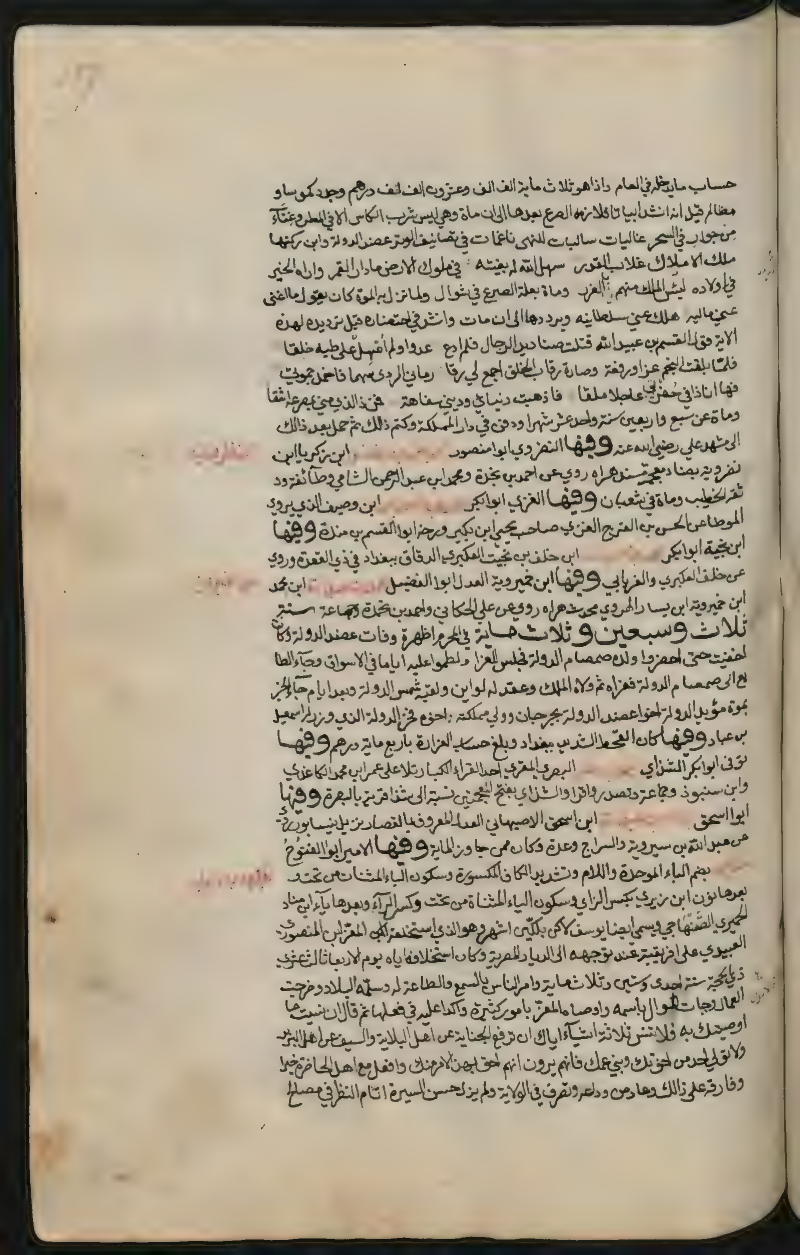 حساب ما يدخله في العام واذا هو ثلاث ماية الف الف وعشرون الف الف درهم وجدد مكوسا و
مظالم قيل انه انشد ابياتا فلازمه الصرع بعدها الى ان ماة وهي ليس شرب الكاس الا في المطر وغناء
من جواب في السحر غانيات سالبات للنهى ناغمات في تضاعيف الوتر عضد الدولة وابن ركنها
ملك الاملاك غلاب القدر سهل الله له بغيته في ملوك الارض مادار القمر واراه الخير
في اولاده ليس الملك منهم بالغرر وماة بعلة الصرع في شوال ولما نزل به الموة كان يقول ما اغنى
عني ماليه هلك عني سلطانيه ويرددها الى ان مات وانشد في احتضاره قبل ترديده لهذه
الاية وقول القسم بن عبيد الله قتلت صناديد الرجال فلم ادع عدوا ولم امهل على طيه خلقا
فلما بلغت النجم عزا ورفعة وصارة رقاب الخلق اجمع لي رقا رماني الردى سهما فاخمد جمرتي
فها انا ذا في حفرتي عاجلا ملقا فاذهبت دنياي وديني سفاهة فمن ذا الذي مني بمصرعه اشقا
وماة عن سبع واربعين سنة واحد عشر شهرا ودفن في دار المملكة وكتم ذلك ثم حمل بعد ذالك
الى مشهد علي رضي الله عنه وفيها النضروي ابوا منصور ابن زكريا ابن
نضروية بضاد معجمة مسند هراه روي عن احمد بن نجدة ومحمد ابن عبد الرحمن الشامي وطائفة و
ثقه الخطيب وماة في شعبان وفيها الغزي ابوا بكر ابن وصيف الذي يروي
الموطا عن الحسن بن الفرج الغزي صاحب يحيى ابن بكير ورخه ابوا القسم بن مندة وفيها
ابن بخيت ابوا بكر ابن خلف بن بخيت العكبري الدقاق ببغداد في ذي القعدة وروي
عن خلف العكبري والفريابي وفيها ابن خميروية العدل ابوا الفضل ابن محمد
ابن خميروية ابن يسار الهروي محدث هراه روي عن علي الحكاني واحمد بن نجدة وجماعة سنة
ثلاث وسبعين وثلاث ماية في المحرم اظهرة وفات عضد الدولة وكان
اخفيت حتى احضروا ولده صمصام الدولة فجلس للعزا ولطموا عليه اياما في الاسواق وجاء الطا
يع الى صمصام الدولة فعزاه ثم ولاه الملك وعقد له لواين ولقبه شمس الدولة وبعد ايام جاء الخبر
بموة مؤيد الدولة اخوا عضد الدولة بجرجان وولي مملكته اخوه فخر الدولة الذي وزر له اسمعيل
بن عباد وفيها كان القحط الشديد ببغداد وبلغ حساب الغرارة باربع ماية درهم وفيها
توفى ابوا بكر الشذاي البصري المقري احد القراء الكبار تلا على عمر ابن محمد الكاغدي
وابن سنبوذ وجماعة وتصدر واقرا والشذاي بفتح المعجمتين نسبة الى شذا قرية بالبصرة وفيها
ابوا اسحق ابن اسحق الاصبهاني العدل المعروف بالقصار نزيل نيسابور روي
عن عبد الله بن سيروية والسراج وعدة وكان ممن جاوز الماية وفيها الامير ابوا الفتوح
بضم الباء الموحدة واللام وتشديد الكاف المكسورة وسكون الياء المثناة من تحت و
بعدها نون ابن زيري بكسر الزاي وسكون الياء المثناة من تحت وكسر الراء وبعدها ياء ابن مناد
الحميري الصنهاجي ويسمى ايضا يوسف لاكن بلكين اشهر وهو الذي استخلفه المعز ابن المنصور
العبيدي على افريقية عند توجهه الى الديار المصرية وكان استخلافه اياه يوم الاربعا ثالث عشري
ذي الحجة سنة احدى وستين وثلاث ماية وامر الناس بالسمع والطاعة له وسلمه البلاد وخرجت
العمال وجبات الاموال باسمه واوصاه المعز بامور كثيرة واكد عليه في فعلها ثم قال ان نسيت ما
اوصيتك به فلا تنس ثلاثة اشياء اياك ان ترفع الجباية عن اهل البلاية والسيف عن اهل البربر
ولا تولي احد من اخوتك وبني عمك فانهم يرون انهم احق بهذا الامر منك وافعل مع اهل الحاضرة خيرا
وفارقه على ذالك وعاد من وداعه وتصرف في الولاية ولم يزل حسن السيرة اتام النظر في مصالح